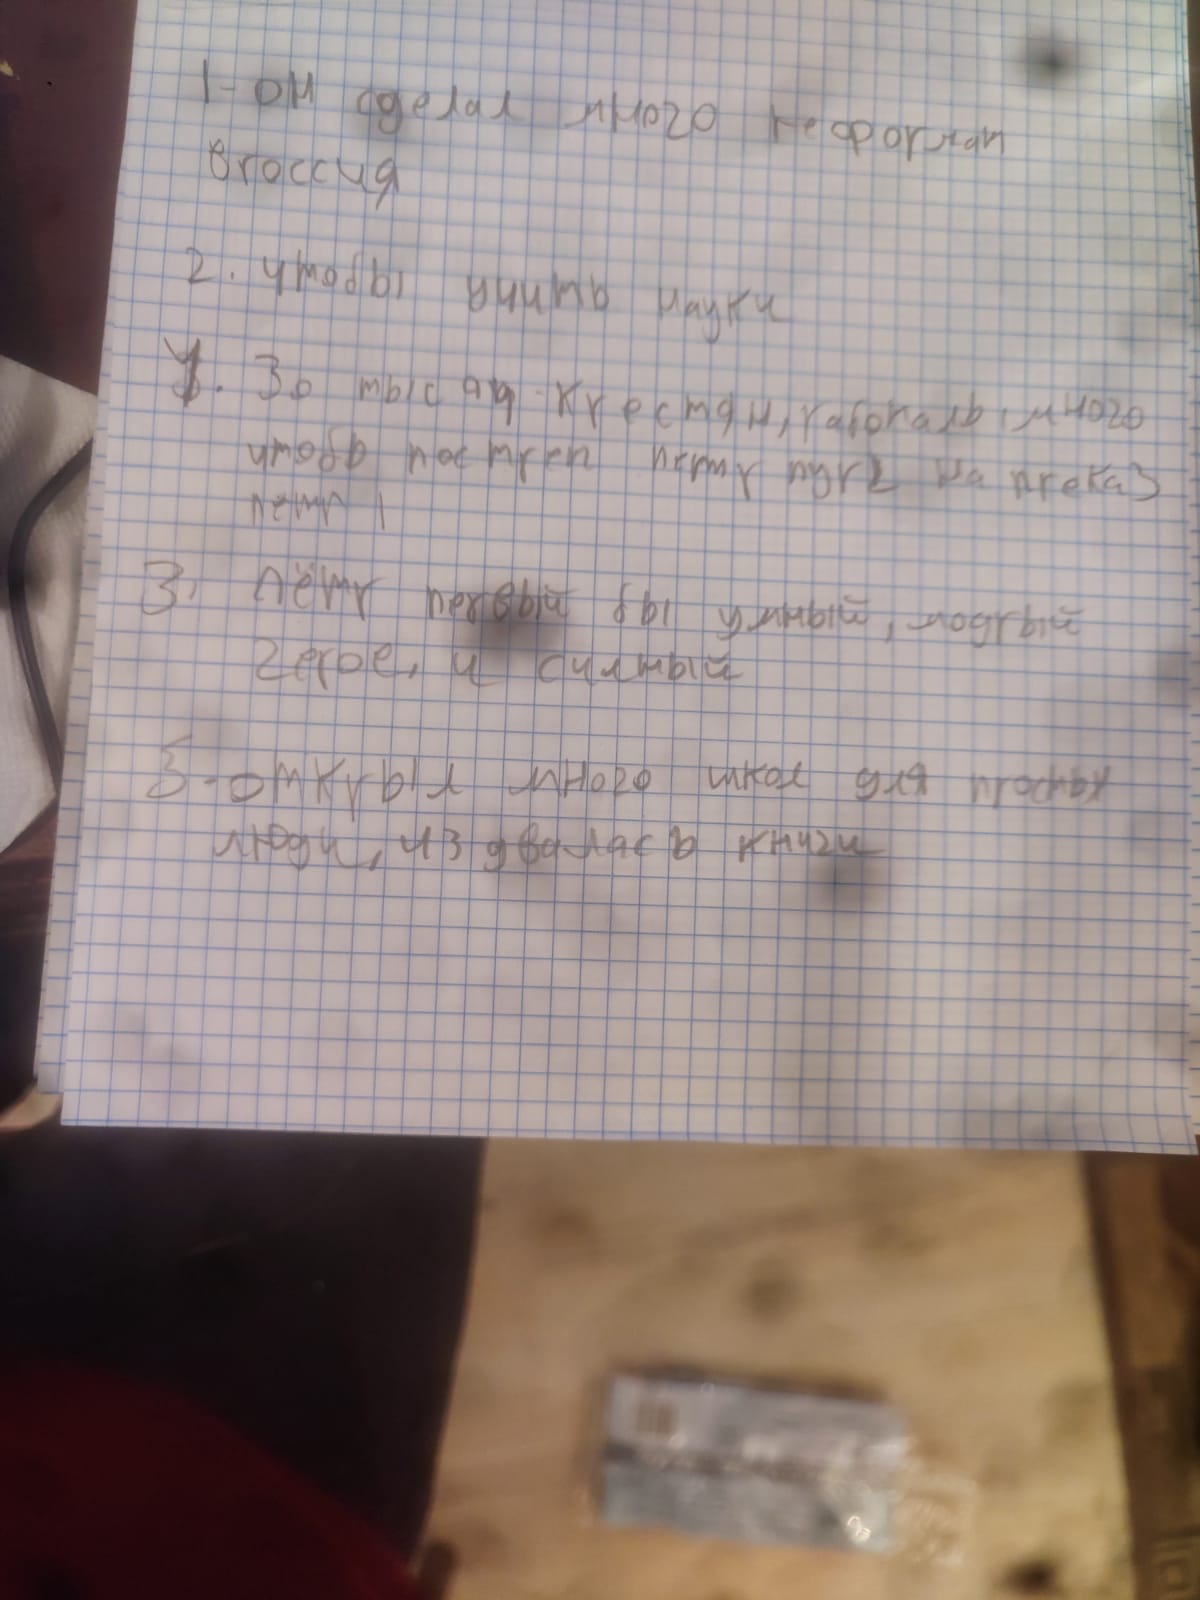 1- он сделал много реформат
вroссия
2. чтобы учить науки
4. 30 тысяд крестян, rаботаль, много
чтобы построп петr пуr2 на преказ
пётr 1
3, пётr первый бы умный, модrый
герое, и силный
5-открыл много школ для простых
люди, издвалась книги